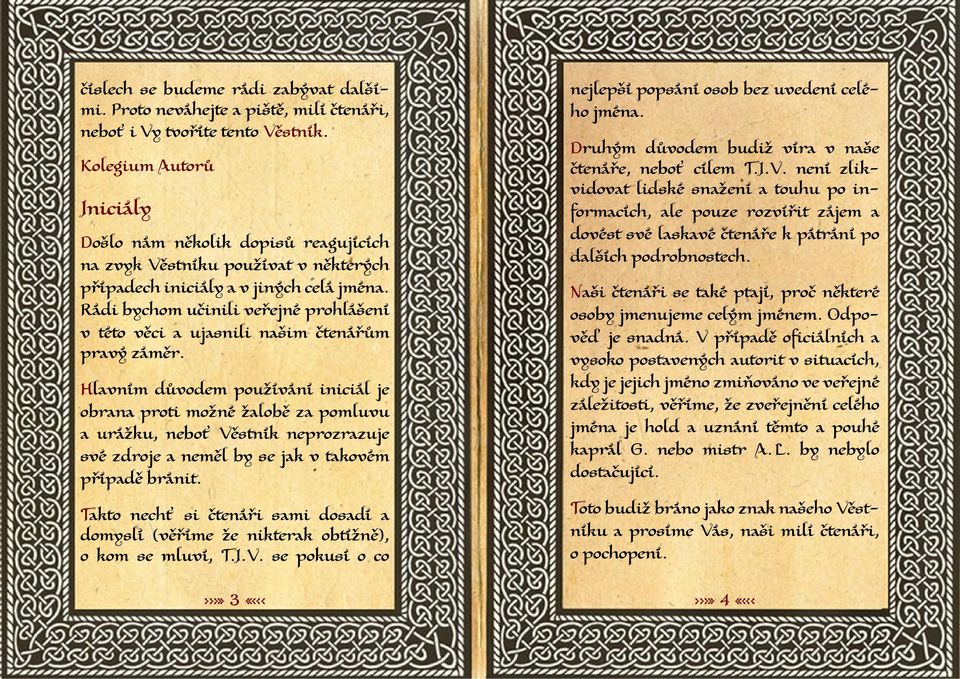 číslech se budeme rádi zabývat další-
mi. Proto neváhejte a piště, milí čtenáři,
neboť i Vy tvoříte tento Věstník.
Kolegium Autorů
Iniciály
Došlo nám několik dopisů reagujících
na zvyk Věstníku používat v některých
případech iniciály a v jiných celá jména.
Rádi bychom učinili veřejné prohlášení
v této věci a ujasnili našim čtenářům
pravý záměr.
Hlavním důvodem používání iniciál je
obrana proti možné žalobě za pomluvu
a urážku, neboť Věstník neprozrazuje
své zdroje a neměl by se jak v takovém
případě bránit.
Takto nechť si čtenáři sami dosadí a
domyslí (věříme že nikterak obtížně),
o kom se mluví, T.I.V. se pokusí o co
»»» 3 «««
nejlepší popsání osob bez uvedení celé-
ho jména.
Druhým důvodem budiž víra v naše
čtenáře, neboť cílem T.I.V. není zlik-
vidovat lidské snažení a touhu po in-
formacích, ale pouze rozvířit zájem a
dovést své laskavé čtenáře k pátrání po
dalších podrobnostech.
Naši čtenáři se také ptají, proč některé
osoby jmenujeme celým jménem. Odpo-
věď je snadná. V případě oficiálních a
vysoko postavených autorit v situacích,
kdy je jejich jméno zmiňováno ve veřejné
záležitosti, věříme, že zveřejnění celého
jména je hold a uznání těmto a pouhé
kaprál G. nebo mistr A. L. by nebylo
dostačující.
Toto budiž bráno jako znak našeho Věst-
níku a prosíme Vás, naši milí čtenáři,
o pochopení.
»»» 4 «««